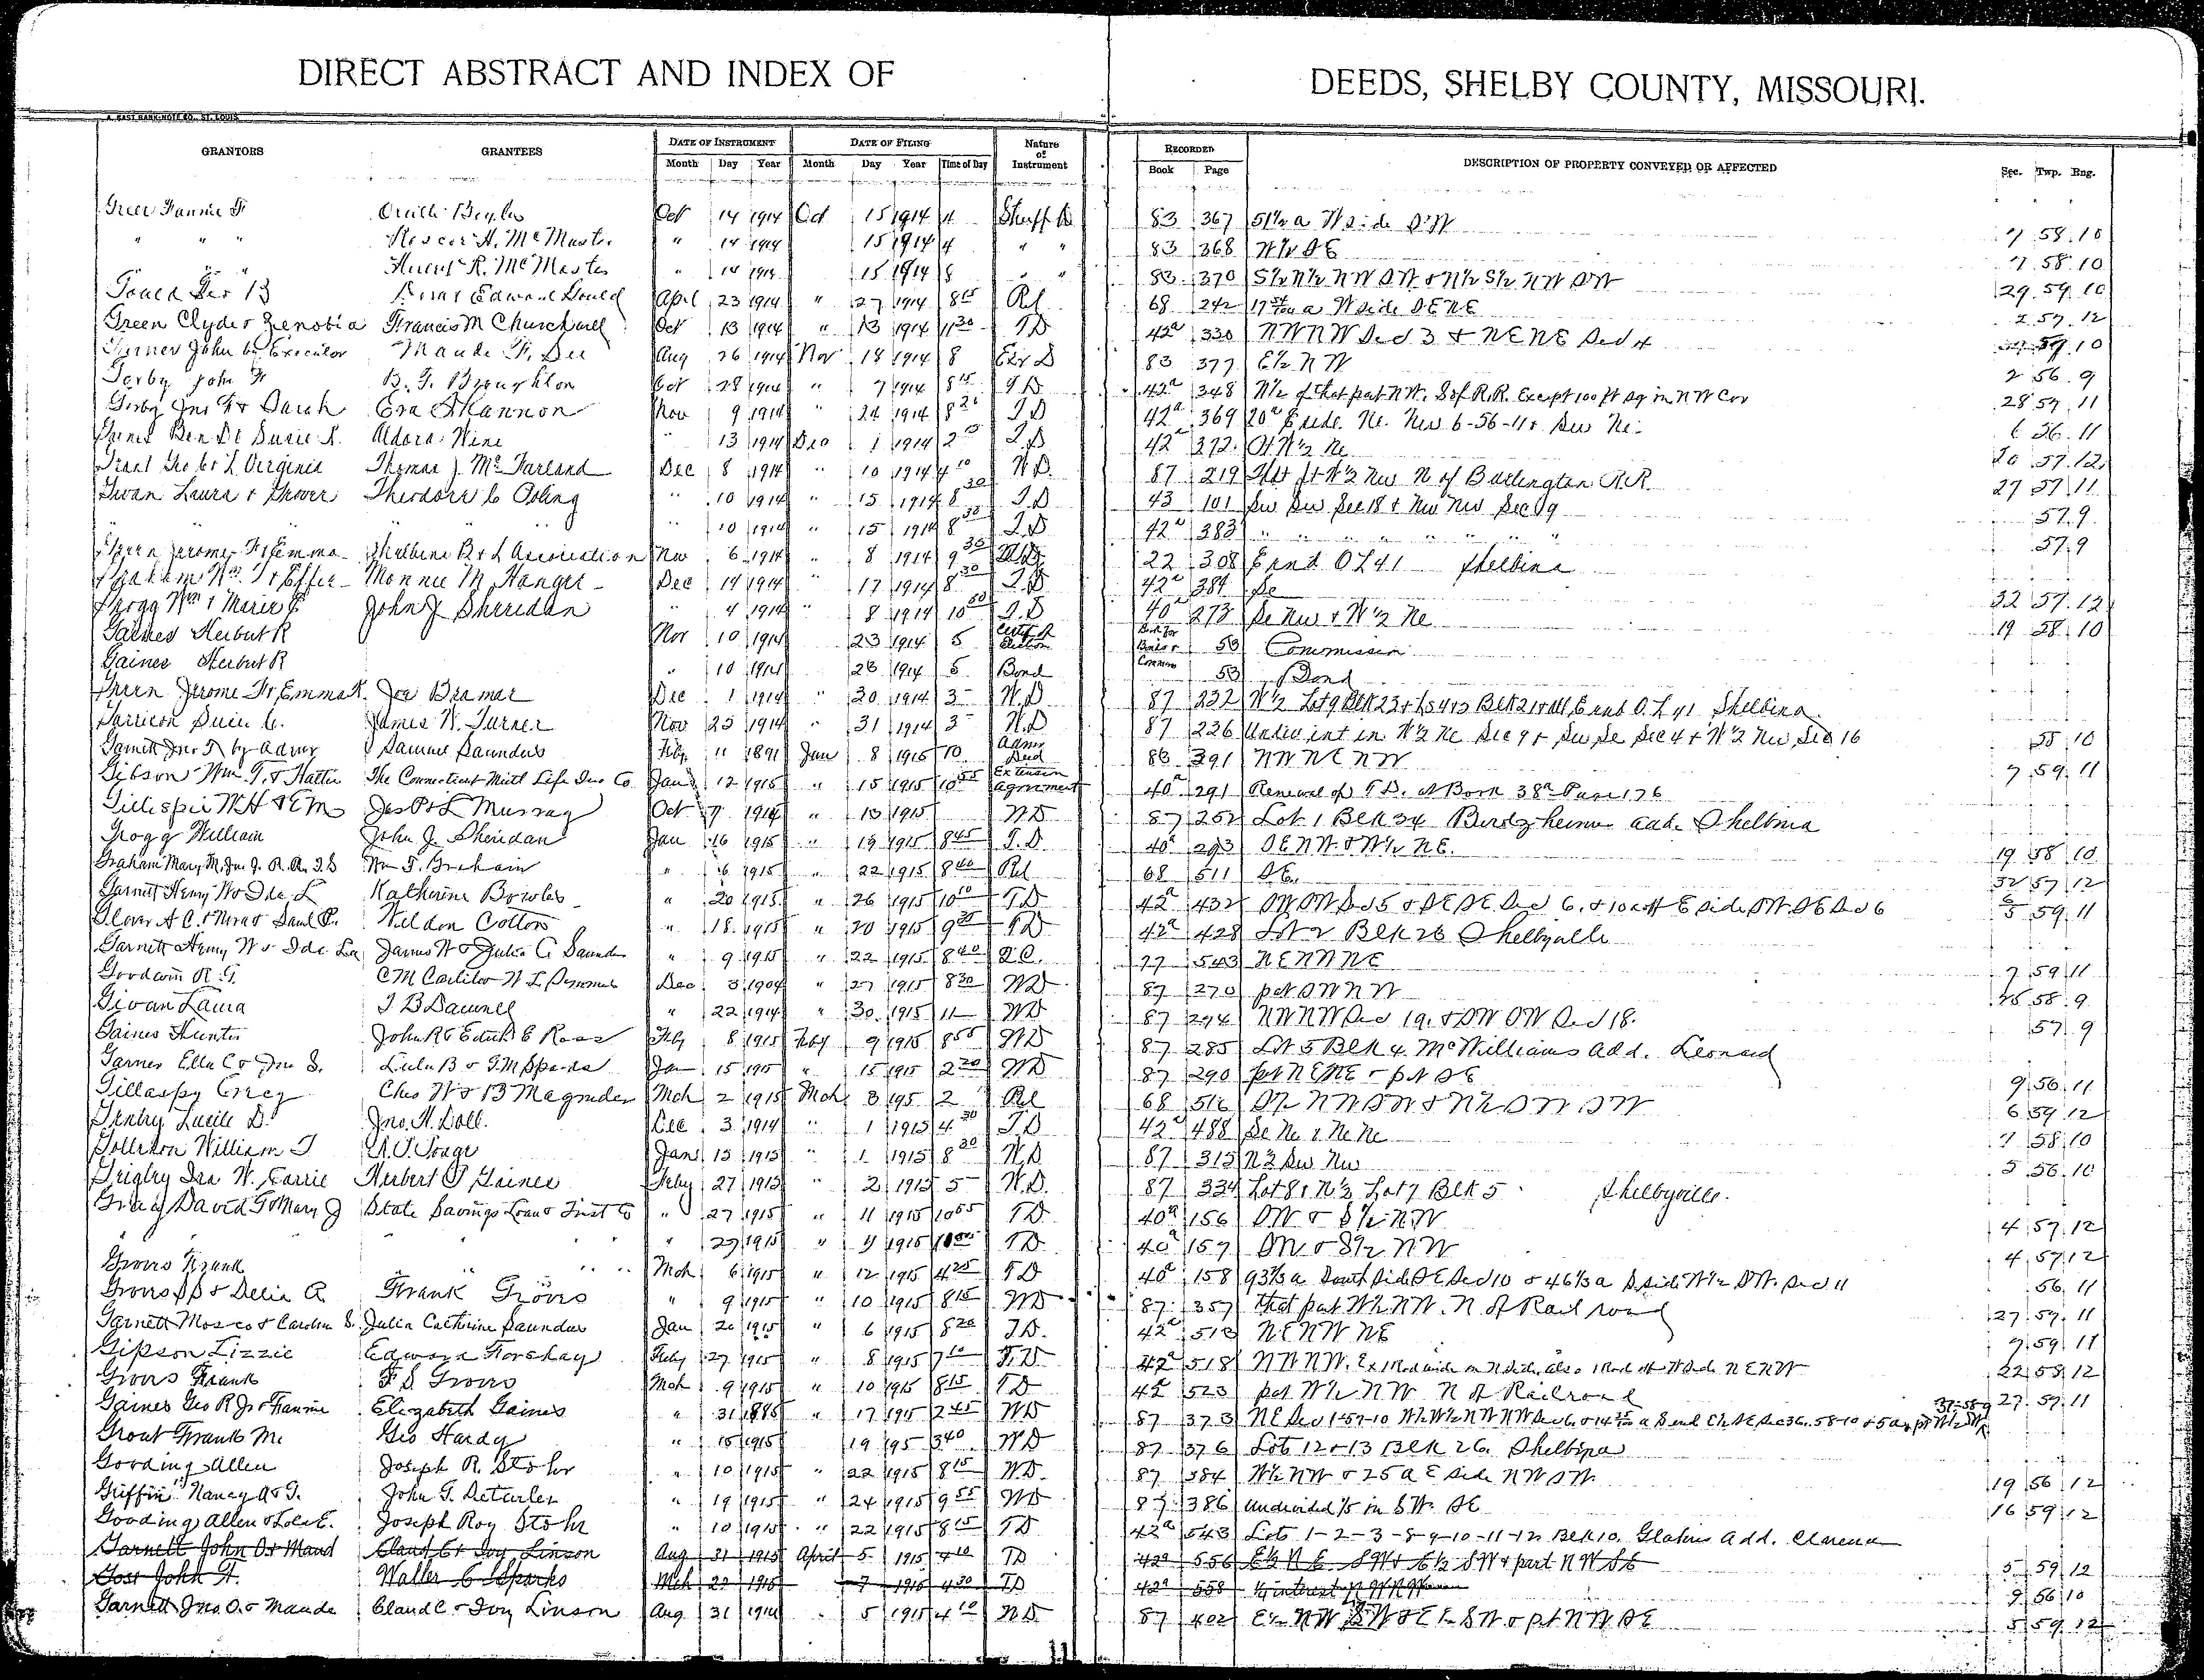 DIRECT ABSTRACT AND INDEX OF DEEDS, SHELBY COUNTY, MISSOURI.
A. EAST BANK-NOTE CO., ST. LOUIS
GRANTORS GRANTEES DATE OF INSTRUMENT DATE OF FILING Nature of Instrument RECORDED DESCRIPTION OF PROPERTY CONVEYED OR AFFECTED Sec. Twp. Rng.
Month Day Year Month Day Year Time of Day Book Page
Greer Fannie F Oct 14 1914 Oct 15 1914 11 Sheriff D 83 367 51½ a W side SW 7 58 10
" " " Roscoe H. McMaster " 14 1914 15 1914 4 " " 83 368 W½ SE 7 58 10
" " R. McMaster " 14 1914 15 1914 8 " " 83 370 S½ N½ NW SW & N½ S½ NW SW 29 59 10
Gould Geo B Edward Gould April 23 1914 " 27 1914 8 15 Rel 68 242 a W side SE NE 2 57 12
Green Clyde & Zenobia Francis M Churchwell Oct 13 1914 " 13 1914 11 30 T D 42a 330 NW NW Sec 3 & NE NE Sec 4 59 10
John by Executor Maude F. Aug 26 1914 Nov 18 1914 8 Exr D 83 377 E½ NW 2 56 9
John F B. F. Broughton Oct 28 1914 " 7 1914 8 15 T D 42a 348 N½ of that part NW. S of R.R. Except 100 ft sq in NW Cor 28 57 11
Jno F & Sarah Eva Shannon Nov 9 1914 " 24 1914 8 20 T D 42a 369 20a E side Ne. Nw 6-56-11 & Sw Ne 6 56 11
Ben & Susie Aldora Wine " 13 1914 Dec 1 1914 2 T D 42a 372 W½ Ne 20 57 12
Grant Geo & L Virginia Thomas J. McFarland Dec 8 1914 " 10 1914 4 10 W D. 87 219 W½ Nw N of Burlington R.R. 27 57 11
Givan Laura & Grover Theodore C Ooling " 10 1914 " 15 1914 8 30 T D 43 101 Sw Sw Sec 18 & Nw Nw Sec 19 57 9
" " " 10 1914 " 15 1914 8 30 T D 42a 383 " " " " " " " 57 9
Green Jerome F & Emma Shelbina B & L Association Nov 6 1914 " 8 1914 9 30 22 308 E end O L 41 Shelbina
Graham Wm. T & Effie Monnie M Hanger Dec 14 1914 " 17 1914 8 30 T. D 42a 384 Se 32 57 12
Grogg Wm & Marie E John J Sheridan " 4 1914 " 8 1914 10 50 T. D 40a 273 Se Nw & W½ Ne 19 58 10
Gaines Herbert R Nov 10 1914 23 1914 5 Certf of Election Book for Bonds & Commns 53 Commission
Gaines Herbert R " 10 1914 23 1914 5 Bond 53 Bond
Green Jerome F, Emma K. Joe Bramar Dec 1 1914 " 30 1914 3 W. D 87 232 W½ Lot 9 Blk 23 & Blk 21 & all E end O. L 41 Shelbina
Garrison Susie C. James W. Turner Nov 25 1914 " 31 1914 3 W. D 87 236 Undiv int in W½ Ne Sec 9 & Sw Se Sec 4 & W½ Nw Sec 16 55 10
Garnett Jno. T by Admr Samuel Saunders Feby 11 1891 Jan 8 1915 10 Admr Deed 83 391 NW NE NW 7 59 11
Gibson Wm. T. & Hattie The Connecticut Mutl Life Ins Co Jany 12 1915 " 15 1915 10 55 Extension Agreement 40a 291 Renewal of T D. of Book 38a Page 176
Gillispie W H & E M Jas P & L Murray Oct 7 1914 " 13 1915 W D 87 252 Lot 1 Blk 34 Add. Shelbina
Grogg William John J. Sheridan Jan 16 1915 " 19 1915 8 45 T. D 40a 293 SE NW & W½ NE. 19 58 10
Graham Mary M, Jno J. R. A. T. S Wm T. Graham " 6 1915 " 22 1915 8 40 Rel 68 511 SE. 32 57 12
Garnett Henry W & Ida L Katherine Bowles " 20 1915 " 26 1915 10 10 T D 42a 432 SW SW Sec 5 & SE SE Sec 6. & 10a off E Side SW. SE Sec 6 5 59 11
Glover A C. & Mora & Saml P. Weldon Cotton " 18 1915 " 20 1915 9 30 T D 42a 428 Lot 2 Blk 26 Shelbyville
Garnett Henry W & Ida Lee James W & Julia C Saunders " 9 1915 " 22 1915 8 40 Q. C. 77 543 NE NW NE 7 59 11
Goodwin R. G. C M W L Dec 3 1904 " 27 1915 8 30 W D 87 270 pt SW NW 58 9
Givan Laura T B Damrell " 22 1914 " 30 1915 11 W D 87 294 NW NW Sec 19. & SW SW Sec 18. 57 9
Gaines Hunter John R & Edith E Ross Feby 8 1915 Feby 9 1915 8 55 W D 87 285 Lot 5 Blk 4. McWilliams Add. Leonard
Garner Ella C & Jno S. Lula B & G M Sparks Jan 15 1915 " 15 1915 2 20 W D 87 290 pt NE NE & pt SE 9 56 11
Gillaspy Chas W & B Magruder Mch 2 1915 Mch 3 1915 2 Rel 68 516 S½ NW SW & N½ SW SW 6 59 12
Gentry Lucile D. Jno. H. Doll. Dec 3 1914 " 1 1915 4 30 T. D 42a 488 Se Ne & Ne Ne 1 58 10
Gollehon William T Jan 15 1915 " 1 1915 8 30 W. D 87 315 N½ Sw Nw 5 56 10
Grigby Ira W. Carrie Herbert P Gaines Feby 27 1915 " 2 1915 5 W. D. 87 334 Lot 8 & N½ Lot 7 Blk 5 Shelbyville.
Gray David G & Mary J State Savings Loan & Trust Co " 27 1915 " 11 1915 10 55 T D 40a 156 SW & S½ NW 4 57 12
" " " " 27 1915 " 11 1915 T D 40a 157 SW & S½ NW 4 57 12
Groves Frank " " " Mch 6 1915 " 12 1915 4 25 T D 40a 158 93⅓ a South Side SE Sec 10 & 46⅓ a S side W½ SW. Sec 11 56 11
Groves & Delia A Frank Groves " 9 1915 " 10 1915 8 15 W D 87 357 that part W½ NW. N. of Rail road 27 57 11
Garnett Mosco & Caroline S. Julia Catherine Saunders Jan 20 1915 " 6 1915 8 20 T. D. 42a 513 NE NW NE 7 59 11
Gipson Lizzie Edward Forshay Feby 27 1915 " 8 1915 7 10 T. D 42a 518 NW NW. Ex 1 Rod wide on N side, also 1 Rod off W side NE NW 22 58 12
Groves Frank F S Groves Mch 9 1915 " 10 1915 8 15 T D 42a 523 pt W½ NW N of Railroad 27 57 11
Gaines Geo R Jr & Fannie Elizabeth Gaines " 31 1885 " 17 1915 2 45 W D 87 373 NE Sec 1-57-10
Grout Frank M. Geo Hardy " 15 1915 19 95 3 40 W D 87 376 Lots 12 & 13 Blk 26. Shelbina
Gooding Allen Joseph R. Stohr " 10 1915 " 22 1915 8 15 W. D. 87 384 W½ NW & 25 a E side NW SW 19 56 12
Griffin Nancy A & T. John T. Deturler " 19 1915 " 24 1915 9 55 W D 87 386 Undivided 1/5 in SW. SE 16 59 12
Gooding Allen & Lola E. Joseph Roy Stohr " 10 1915 " 22 1915 8 15 T D 42a 543 Lots 1-2-3-8-9-10-11-12 Blk 10. Add. Clarence
Garnett John O & Maud Claud C & Ivy Linson Aug 31 1915 April 5 1915 4 10 T D 42a 556 E½ N E SW & E½ SW & part NW SE 5 59 12
Goss John H. Walter C Sparks Mch 22 1915 7 1915 4 30 T D 42a 558 interest N W N W 9 56 10
Garnett Jno. O. & Maude Claud C & Ivy Linson Aug 31 1914 " 5 1915 4 10 W D. 87 402 E½ NW SW & E½ SW & pt NW SE 5 59 12